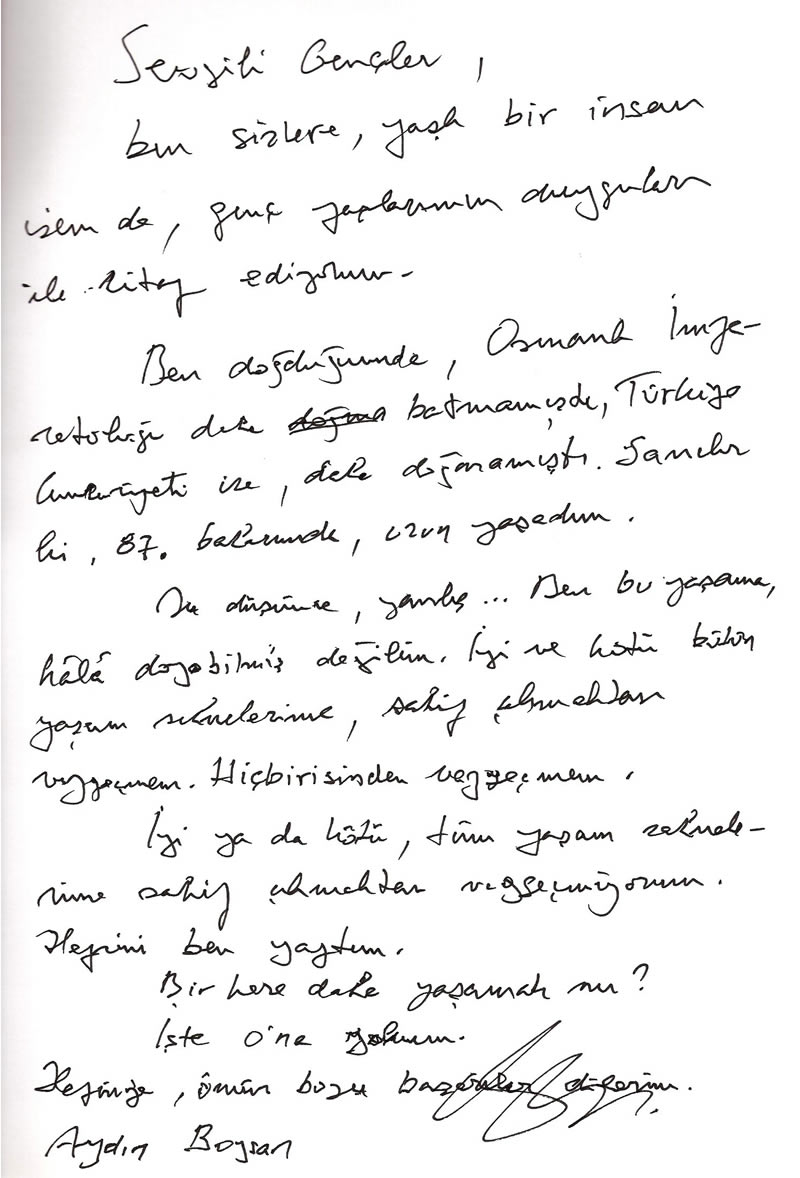 Sevgili Gençler,
ben sizlere, yaşlı bir insan
isem de, genç yaşlarımın duyguları
ile hitap ediyorum.
Ben doğduğumda, Osmanlı İmpa-
ratorluğu daha doğma batmamıştı, Türkiye
Cumhuriyeti ise, daha doğmamıştı. Sanılır
ki, 87. baharımda, uzun yaşadım.
Bu düşünce, yanlış... Ben bu yaşama,
hâlâ doyabilmiş değilim. İyi ve kötü bütün
yaşam sahnelerime, sahip çıkmaktan
vazgeçmem. Hiçbirisinden vazgeçmem.
İyi ya da kötü, tüm yaşam sahnele-
rime sahip çıkmaktan vazgeçmiyorum.
Hepsini ben yaptım.
Bir kere daha yaşamak mı?
İşte o'na yokum.
Hepinize, ömür boyu başarılar dilerim.
Aydın Boysan